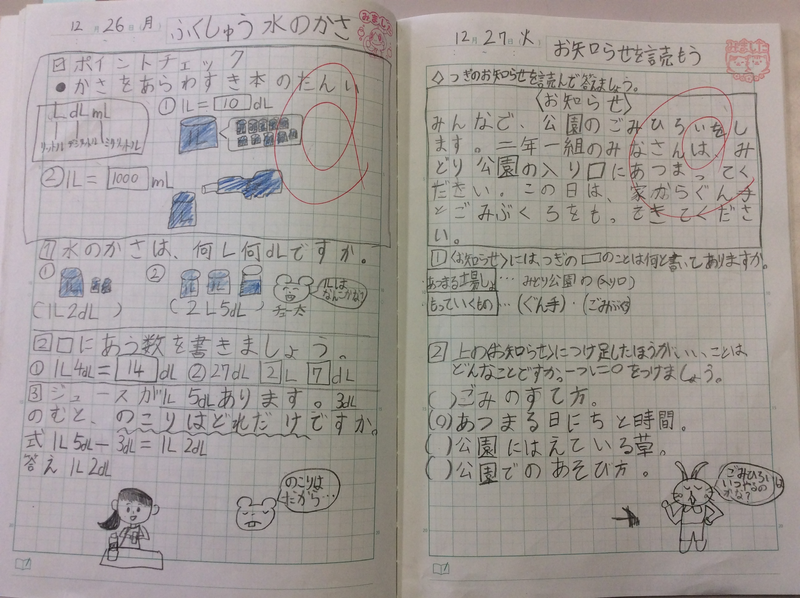 12月26日月 ふくしゅう 水のかさ
ポイントチェック
●かさをあらわすき本のたんい
L dL mL
リットル デシリットル ミリリットル
①1L=10dL
②1L=1000mL
1 水のかさは、何L何dLですか。
① ②
(1L2dL) (2L5dL)
1Lは
なんこかな?
チュー太
2 □にあう数を書きましょう。
①1L4dL=14dL ②27dL 2L7dL
3 ジュースが1L5dLあります。3dL
のむと、のこりはどれだけですか。
式 1L5dL-3dL=1L2dL
答え 1L2dL
のこりは
だから…
12月27日火 お知らせを読もう
◇つぎのお知らせを読んで答ましょう。
〈お知らせ〉
みんなで、公園のごみひろいをし
ます。二年一組のみなさんは、み
どり公園の入り口にあつまってく
ださい。この日は、家からぐん手
とごみぶくろをも。てきてくださ
い。
1 〈お知らせ〉には、つぎの□のことは何と書いてありますか。
あつまる場しょ…みどり公園の(入り口)
もっていくもの…(ぐん手)・(ごみぶくろ)
2 上の〈お知らせ〉につけ足したほうがいいことは
どんなことですか。一つに○をつけましょう。
( )ごみのすて方。
(○)あつまる日にちと時間。
( )公園にはえている草。
( )公園でのあそび方。
ごみひろいは
いつやるの
かな?